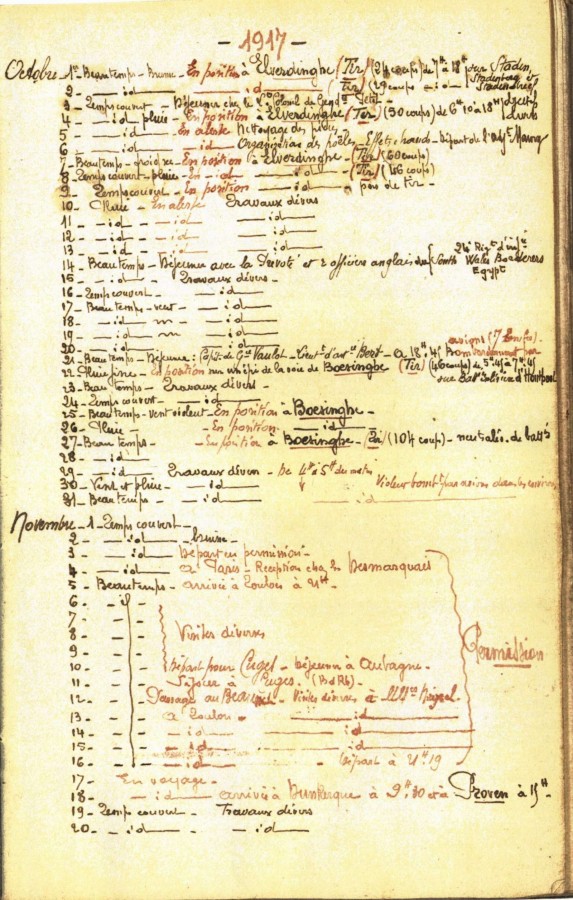 - 1917 -
Octobre - 1er - Beau temps - Brume - En position à Elverdinghe (Tir) (24 coups) de 7H à 18H sur Staden, Stadenberg et Stadendrève
2 - - id - - id - (Tir) (29 coups - id -
3 - Temps couvert - Déjeuner chez le Lt Colonel de Gendie Petit -
4 - - id - pluie - En position à Elverdinghe (Tir) (50 coups) de 6H10 à 18H object. divers
5 - - id - - En alerte Nettoyage des pièces
6 - - id - Organisation des poëles - Effets chauds - Départ de l'adjt Maury
7 - Beau temps - froid sec - En position à Elverdinghe - (Tir) (60 coups)
8 - Temps couvert - pluie - En - id - - id - (Tir) (46 coups)
9 - Temps couvert - En position - id - pas de tir -
10 - Pluie - En alerte Travaux divers
11 - - id - - id - - id -
12 - - id - - id - - id -
13 - - id - - id - - id -
14 - Beau temps - Déjeuner avec la Prévôté et 2 officiers anglais du 24e Rigt d'infie South Wales Borderers Egypt
15 - - id - Travaux divers -
16 - Temps couvert - - id -
17 - Beau temps - vent - - id -
18 - - id - - id -
19 - - id - - id -
20 - - id - - id -
21 - Beau temps - Déjeuner : Capit. de Gie Vaulot - Lieut d'artie Bert - à 18H45 Bombardement par avions (7 bombes)
22 - Pluie fine - En position sur un épi de la voie de Boesinghe (Tir) (46 coups) de 5H45 à 7H45 sur Houthoulst
23 - Beau temps - Travaux divers -
24 - Temps couvert - - id -
25 - Beau temps - vent violent - En position à Boesinghe -
26 - Pluie - - En position - - id -
27 - Beau temps - - En position à Boesinghe - (Tir) (104 coups) - neutralis. de batt's
28 - - id -
29 - - id - Travaux divers - De 4H à 5H du matin
30 - Vent et pluie - - id - Violent bombt par avions dans les environs
31 - Beau temps - - id - - id -
Novembre - 1 - Temps couvert -
2 - - id - brume -
3 - - id - Départ en permission -
4 - - id - à Paris - Réception chez les Desmarquais
5 - Beau temps - arrivée à Toulon à 21H -
6 - - id -
7 - -
8 - - Visites diverses
9 - -
10 - - Départ pour Cuges - déjeuner à Aubagne -
11 - - Séjour à Cuges. (B d Rh) - Permission
12 - - Passage au Beausset - Visites diverses à
13 - - à Toulon - - id -
14 - - - id - - id -
15 - - - id - - id -
16 - - id - - id - Départ à 21H19
17 - En voyage -
18 - - id - arrivée à Dunkerque à 9H30 et à Proven à 15H -
19 - Temps couvert - Travaux divers
20 - - id - - id -